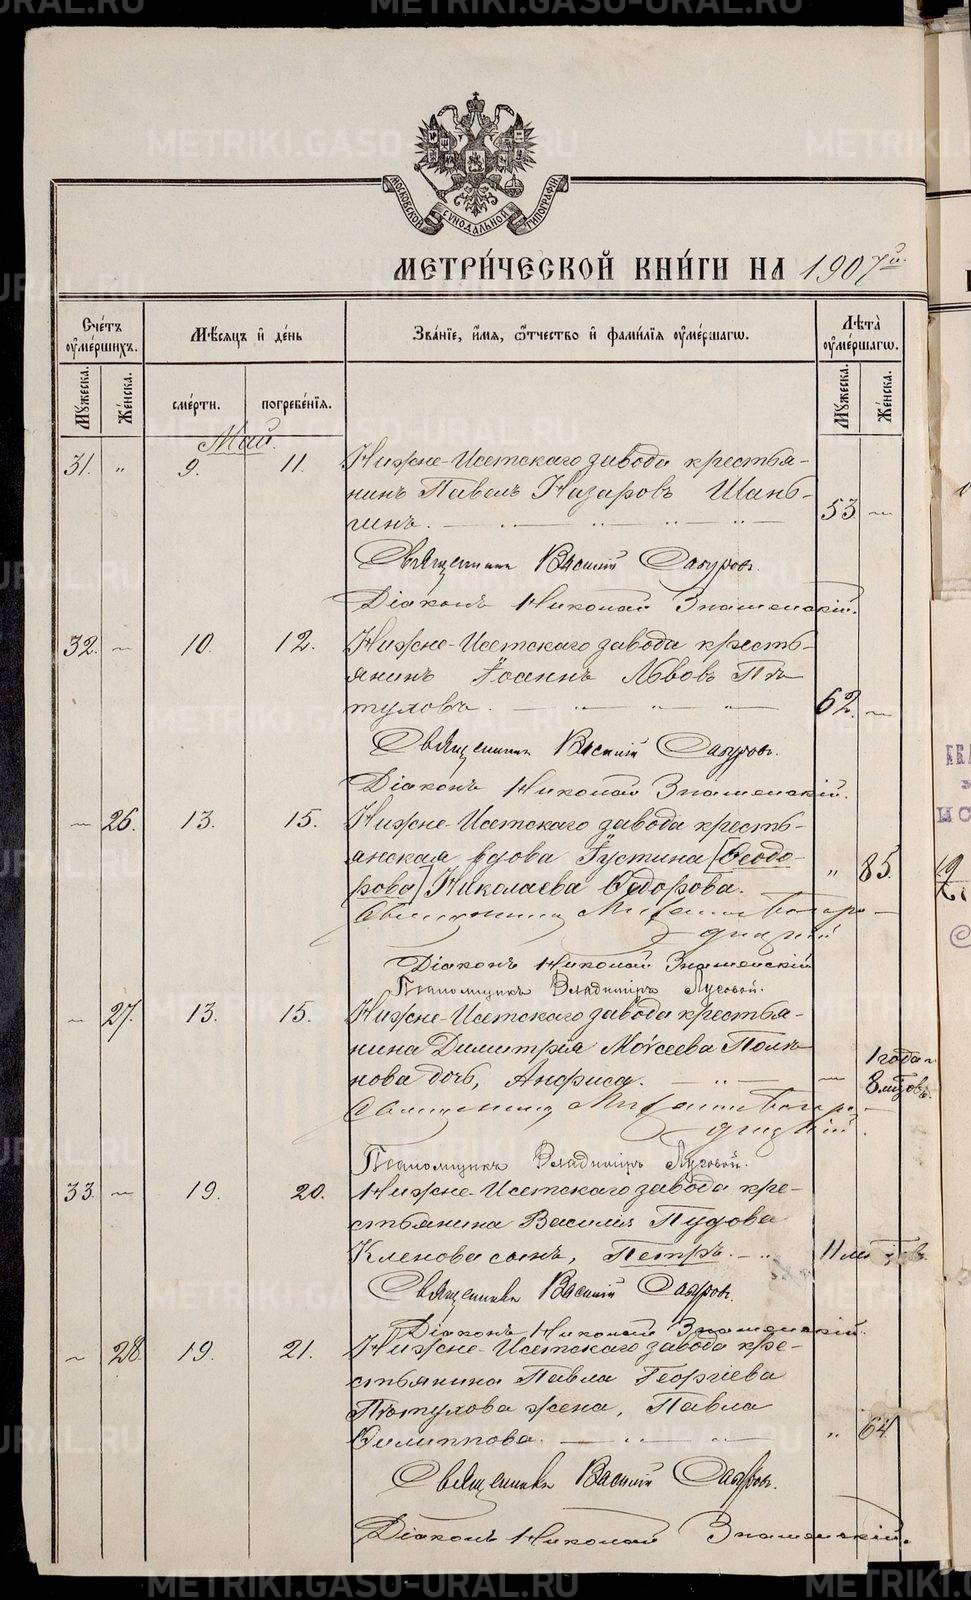 METRIKI.GASO-URAL.RU
МОСКОВСКОЙ СѴНОДАЛЬНОЙ ТИПОГРАФИИ
МЕТРИ́ЧЕСКОЙ КНИ́ГИ НА 1907й
Сче́тъ ᲂумéршихъ.
Мѣсѧцъ и҆ де́нь
Зва́нїе, и҆́мѧ, ѻ҆́тчество и҆ фами́лїѧ ᲂуме́ршагѡ.
Лѣта̀ ᲂуме́ршагѡ.
Мꙋ́жеска.
Же́нска.
сме́рти.
погребе́нїѧ.
Мꙋ́жеска.
Же́нска.
Май.
31. " 9. 11. Нижне-Исетскаго завода крестья-
нинъ Павелъ Назаровъ Шань-
гинъ. 53 —
Священникъ Василій Сапуров.
Діаконъ Николай Знаменскій.
32. — 10. 12. Нижне-Исетскаго завода кресть-
янинъ Іоаннъ Львовъ Пѣ-
туховъ. 62. —
Священникъ Василій Сапуров.
Діаконъ Николай Знаменскій.
— 26. 13. 15. Нижне-Исетскаго завода кресть-
янская вдова Іустина [Ѳеодо-
рова] Николаева Ѳедорова. " 85.
Священникъ Михаилъ Богоро-
дицкій
Діаконъ Николай Знаменскій
Псаломщикъ Владиміръ Луговой.
— 27. 13. 15. Нижне-Исетскаго завода крестья-
нина Димитрія Моѵсеева Полѣ-
нова дочь, Анфиса. — 1 года и 8 мѣсѣцовъ.
Священникъ Михаилъ Богоро-
дицкій.
Псаломщикъ Владиміръ Луговой.
33. — 19. 20. Нижне-Исетскаго завода кре-
стьянина Василія Пудова
Кленова сынъ, Петръ. 11 мѣ
Священникъ Василій Сапуров.
Діаконъ Николай Знаменскій.
— 28. 19. 21. Нижне-Исетскаго завода кре-
стьянина Павла Георгіева
Пѣтухова жена, Павла
Филиппова. " 64
Священникъ Василій Сапуров.
Діаконъ Николай Знаменскій.